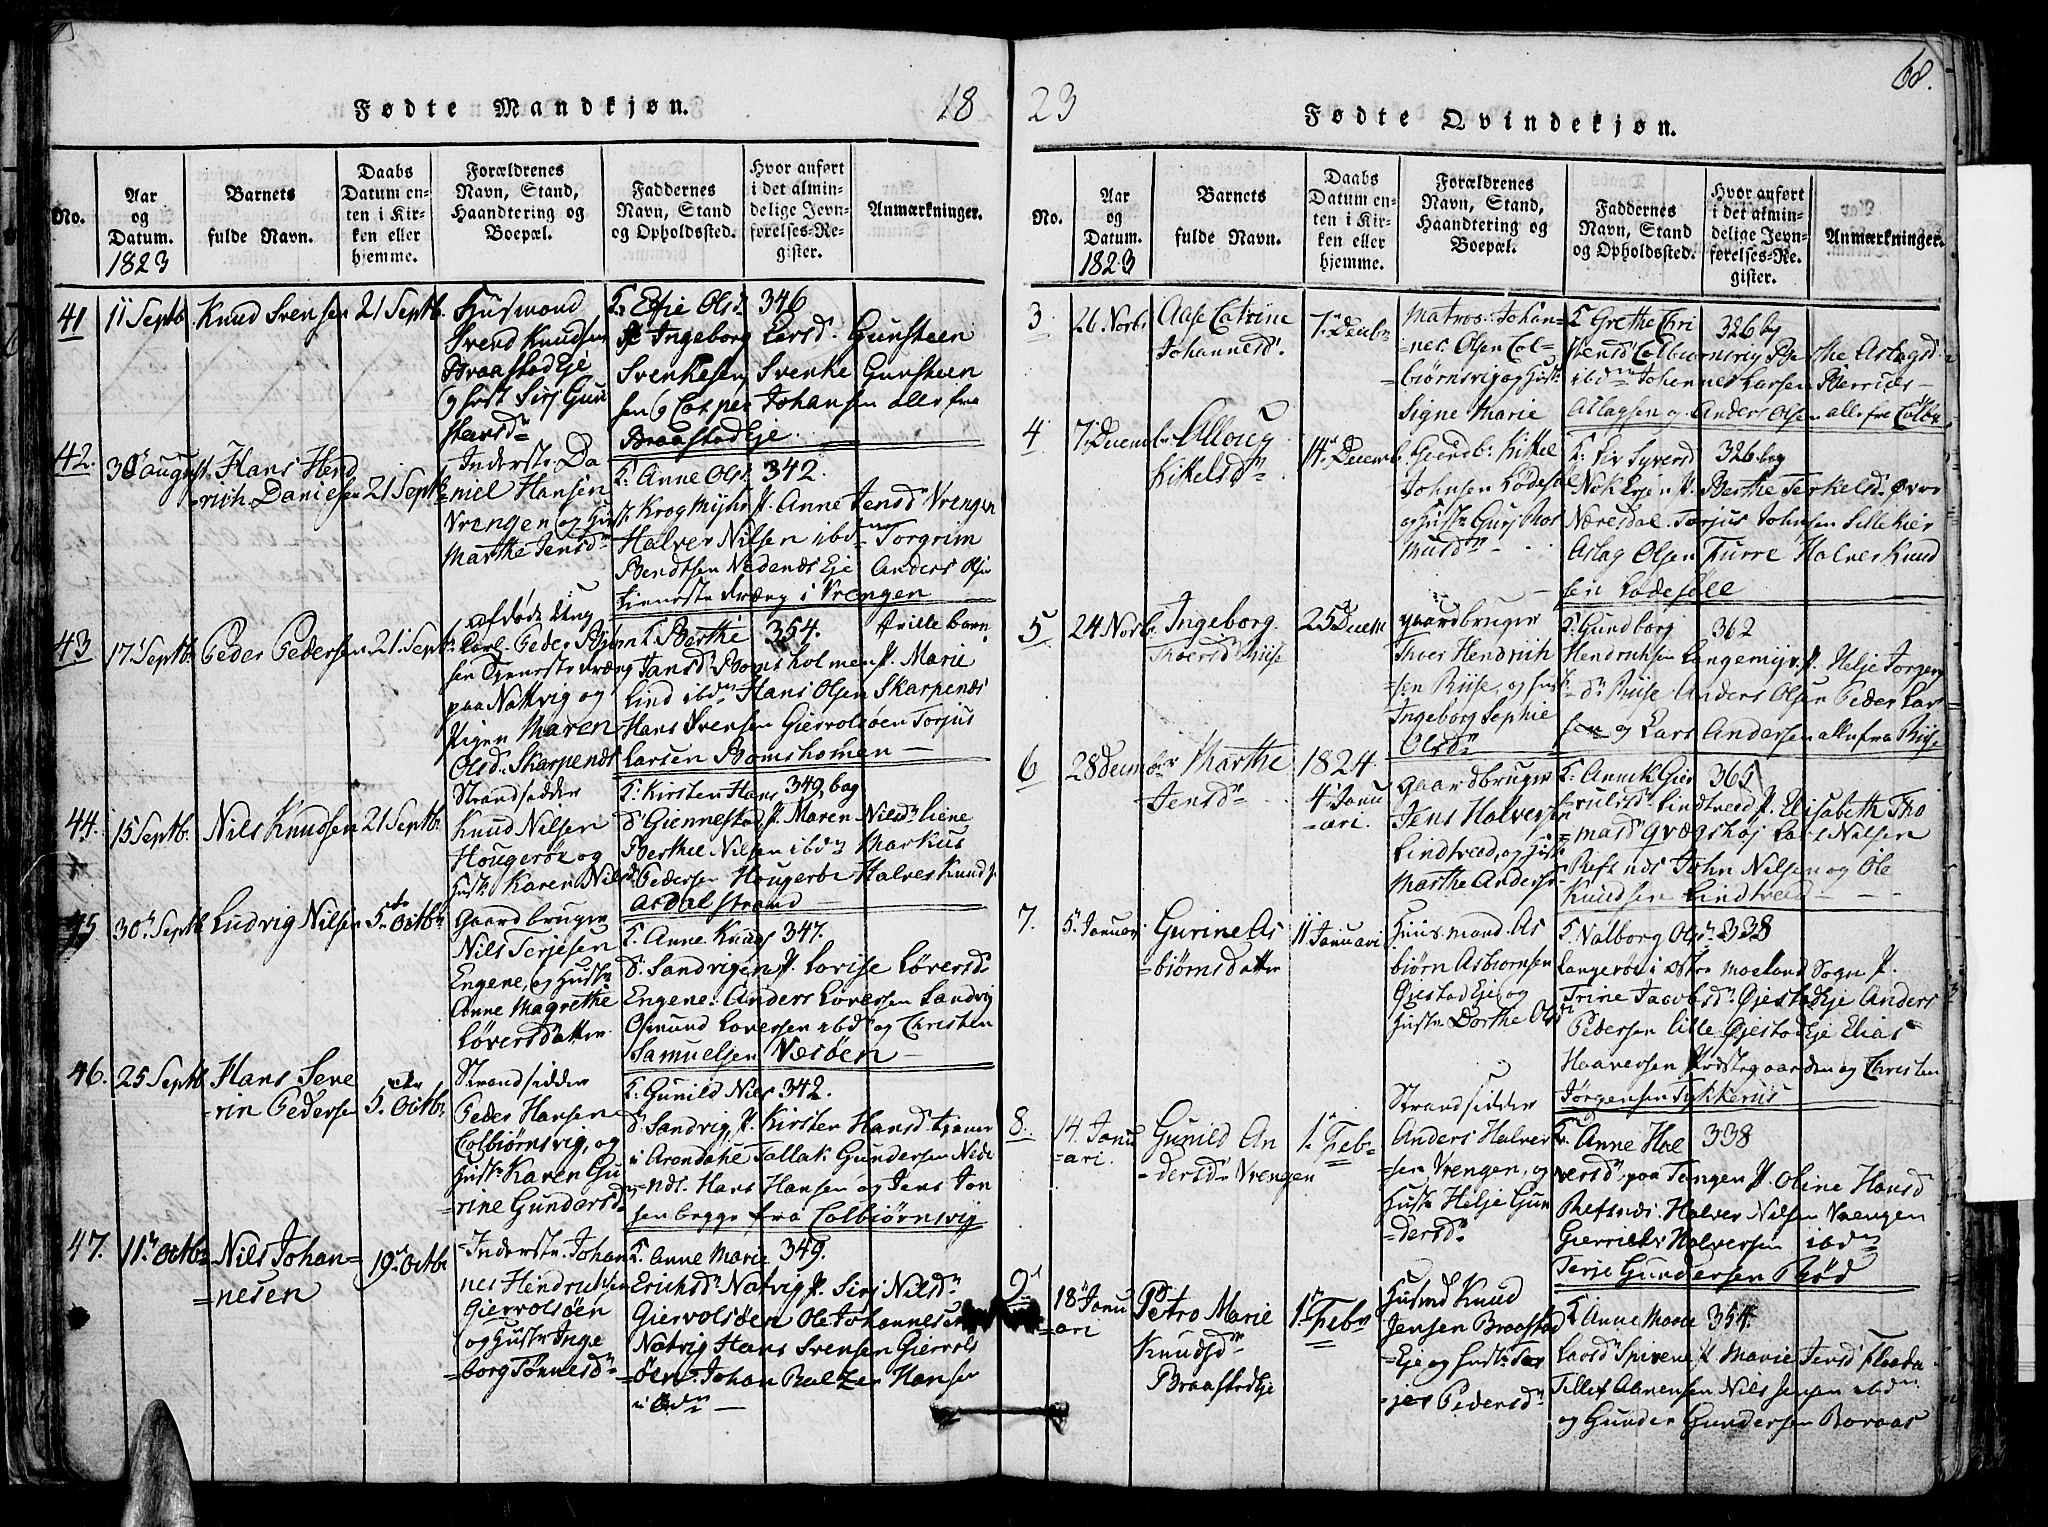 18
Fødte Mandkjøn.
No.
Aar og Datum. 1823
Barnets fulde Navn.
Daabs Datum enten i Kirken eller hjemme.
Forældrenes Navn, Stand, Haandtering og Boepæl.
Faddernes Navn, Stand og Opholdssted.
Hvor anført i det almindelige Jevnførelses-Register.
Anmærkninger.
41
11 Septb.
Knud Svensen
21 Septb.
Huusmand
Svend Knudsen
Braastad Eje
og Hust: Siri Gun
Olsd: 346
Ingeborg Larsd. Gunsteen
Svenkesen, Svenke Gunsteen
sen og Casper Johansen alle fra
Braastad Eje.
42.
30 August
Hans Hend
rich Danielsen
21 Septb.
Inderste Da
niel Hansen
Vrengen og Hu
Marthe Jensd
F: Anne Olsd 342.
Krogmyhr P. Anne Jensd Vrengen
Halver Nilsen ibd Torgrim
Bendtsen Nedenæs Eje Anders Olsen
tieneste dræng i Vrengen
43
17 Septb.
Peder Pedersen
21 Septb.
Peder Bjørn
sen Tjeneste dræng
paa Nattvig og
Pigen Maren
Olsd. Skarpenæs
F. Berthe 354. Hville barn
Jansd: Bomsholmen P. Marie
Lind ibd Hans Olsen Skarpenæs
Hans Svensen Gjervolsøen Torjus
Larsen Bomsholmen —
44.
15 Septb.
Nils Knudsen
21 Septb.
Strandsidder
Knud Nilsen
Hougerøe og
Hust: Karen Nilsd
F: Kirsten Hans 349, bag
d: Giennestad P. Maren Nilsd Liene
Berthe Nilsen ibd Markus
Pedersen Hougerøe Halver Knuds.
Asdal strand —
45
30 Septb
Ludvig Nilsen
5 Octb
Gaardbruger
Nils Terjesen
Engene, og Hust
Anne Magrethe
Løversdatter
F. Anne Knuds 347.
d: Sandvigen P. Lovise Løversd.
Engene. Anders Løversen Sandvig
Osmund Loversen ibd og Christen
Samuelsen Næsøen —
46.
25 Septb
Hans Seve
rin Pedersen
5 Octb
Strandsidder
Peder Hansen
Colbiørnsvig, og
Hust: Karen Gu
rine Gundersd.
F: Gunild Nils 342.
d: Sandvig, P. Kirsten Hansd tjener
i Arendahl Tallak Gundersen Nede
næs. Hans Hansen og Jens Jon
sen begge fra Colbiørnsvig
47.
11 Octb
Nils Johan-
=nesen
19 Octb
=Inderste. Johan
nes Hendrichsen
Gjervolsøen
og Hustr Inge
borg Tønnesd
F. Anne Marie 349.
Erichsd Natvig P. Siri Nilsd
Giervolsøen Ole Johannesen
Natvig Hans Svensen Giervols
øen. Johan Baltzer Hansen
ibd —
23
68.
Fødte Qvindekjøn.
No.
Aar og Datum. 1823
Barnets fulde Navn.
Daabs Datum enten i Kirken eller hjemme.
Forældrenes Navn, Stand, Haandtering og Boepæl.
Faddernes Navn, Stand og Opholdssted.
Hvor anført i det almindelige Jevnførelses-Register.
Anmærkninger.
3
26 Novb.
Aase Catrine
Johannesd.
7 Decemb
Matros: Johan=
nes Olsen Col=
biørnsvig og Hust:
Signe Marie
F Grethe Chri 326 bg
stensd Colbiørnsvig Aslagsd.
ibd Johannes Larsen
Aslagsen og Anders Olsen alle fra Colb
4
7 Decemb
Alloug
Kittelsd
14 Decemb
Gaardb: Kittel
Johnsen Lødesøl
og Hust: Guri Ras
musd
F: Siv Syversd 326 bg
P. Berthe Terkelsd. Øvre
Næresdal. Torjus Johnsen Lille
Aslag Olsen Furre Halver Knud
sen Lødesøl
5
24 Novb.
Ingeborg
Thoersd Riise
25 Decem
gaardbruger
Thoer Hendrich
sen Riise, og Hust
Ingeborg Sophie
Olsd
F. Gundborg 362
Hendrichsen Langemyr. P. Helje Jørgens
d. Riise Anders Olsen Peder Lar
sen og Lars Andersen alle fra Riise
6
28 Decemb
Marthe
Jensd
1824.
4 Janu
=ari.
gaardbruger
Jens Halversen
Lindtveed, og Hust
Marthe Andersd
F: Annik Gier 365
rulfsd Lindtveed P. Elisabeth Tho
masd Qvægshøj Lars Nilsen
Refsnæs John Nilsen og Ole
Knudsen Lindtveed —
7.
5 Januari
Gurine As
=biørnsdatter
11 Januari
Huusmand. As
biørn Asbiørnsen
Øiestad Eje og
Hustr Dorthe Olsd
F. Valborg Olsd 338
Langerøe i Østre Moeland Sogn P.
Trine Jacobsd. Øjestad Eje Anders
Pedersen Lille Øjestad Eje Elias
Haaversen Præstegaarden og Christen
Jørgensen Tykkerus
8.
14. Janu
=ari.
Gunild An
=dersd Vrengen
1 Feb
Strandsidder
Anders Halver
=sen Vrengen, og
Hustr Helje Gun
=dersd
F. Anne Hal 338
versd, paa Tangen P. Oline Hansd
Refsnæs. Halver Nilsen Vrengen
Halversen ibd
Terje Gundersen Rød
9
18 Janu
=ari
Petro Marie
Knudsd
Braastad Eje
1 Feb
Husmd Knud
Jensen Braastad
=Eje og Hust:
Pedersd
F Anne Marie 354
Larsd P. Marie Jensd
Tillef Aanensen Nils Jensen ibd
og Gunder Gundersen Boraas